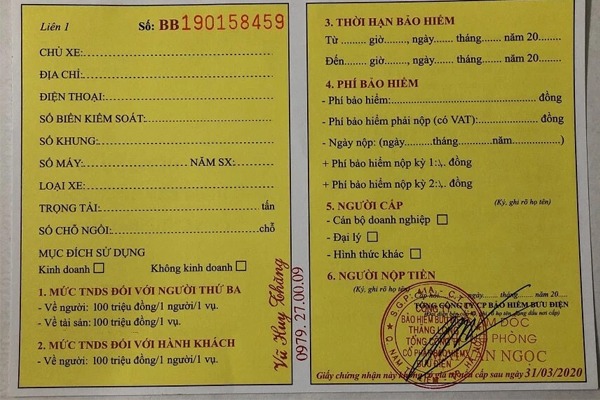 Liên 1 Số: BB190158459
CHỦ XE:
ĐỊA CHỈ:
ĐIỆN THOẠI:
SỐ BIỂN KIỂM SOÁT:
SỐ KHUNG:
SỐ MÁY: NĂM SX:
LOẠI XE:
TRỌNG TẢI: tấn
SỐ CHỖ NGỒI: chỗ
MỤC ĐÍCH SỬ DỤNG
Kinh doanh □ Không kinh doanh □
1. MỨC TNDS ĐỐI VỚI NGƯỜI THỨ BA
- Về người: 100 triệu đồng/1 người/1 vụ.
- Về tài sản: 100 triệu đồng/1 vụ.
2. MỨC TNDS ĐỐI VỚI HÀNH KHÁCH
- Về người: 100 triệu đồng/1 người/1 vụ.
Vũ Huy Thăng
0979.27.00.09
3. THỜI HẠN BẢO HIỂM
Từ ......... giờ........, ngày....... tháng....... năm 20.......
Đến....... giờ........, ngày....... tháng....... năm 20.......
4. PHÍ BẢO HIỂM
- Phí bảo hiểm: đồng
- Phí bảo hiểm phải nộp (có VAT): đồng
- Ngày nộp: (ngày............tháng............năm................)
+ Phí bảo hiểm nộp kỳ 1:.. đồng
+ Phí bảo hiểm nộp kỳ 2:.. đồng
5. NGƯỜI CẤP (Ký, ghi rõ họ tên)
- Cán bộ doanh nghiệp □
- Đại lý □
- Hình thức khác □
6. NGƯỜI NỘP TIỀN (Ký, ghi rõ họ tên)
ngày....... tháng....... năm 20.....
TỔNG CÔNG TY CP BẢO HIỂM BƯU ĐIỆN
BẢO HIỂM BƯU ĐIỆN
THĂNG LONG
TỔNG CÔNG TY
CỔ PHẦN BẢO HIỂM
BƯU ĐIỆN
NGỌC
Giấy chứng nhận này không có giá trị nếu cấp sau ngày 31/03/2020